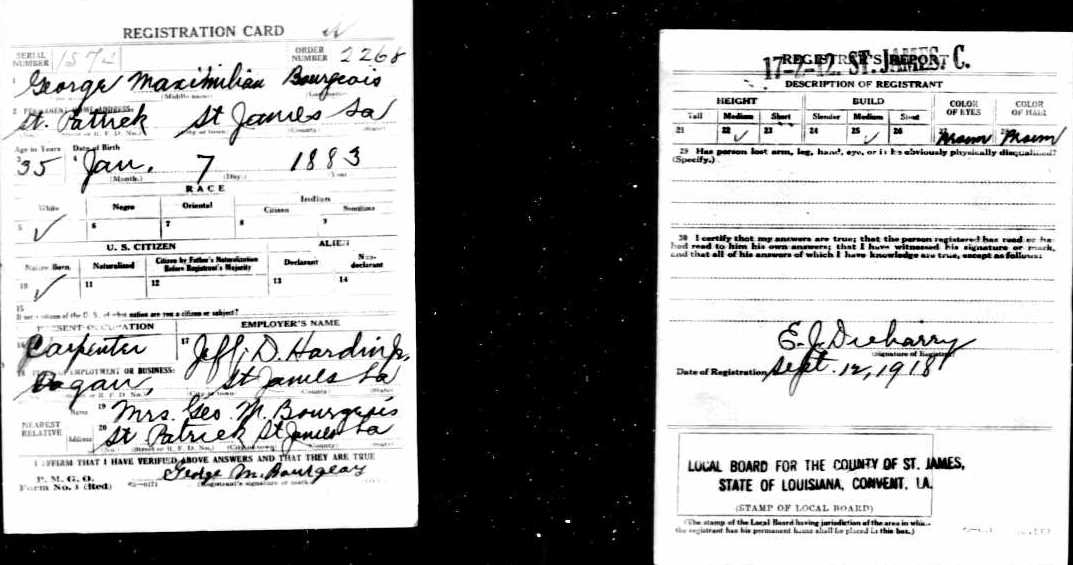 REGISTRATION CARD
SERIAL NUMBER 1572 ORDER NUMBER 2268
1 George Maximilian Bourgeois
(Middle name)
2 PERMANENT HOME ADDRESS:
St. Patrick St James La
(County)
Age in Years Date of Birth
3 35 4 Jan. 7 1883
(Month.) (Day.) Year
RACE
White Negro Oriental Indian
Citizen Noncitizen
5 ✓ 6 7 8 9
U. S. CITIZEN ALIEN
Native Born Naturalized Citizen by Father's Naturalization Before Registrant's Majority Declarant Non-declarant
10 ✓ 11 12 13 14
15
If not a citizen of the U. S., of what nation are you a citizen or subject?
PRESENT OCCUPATION EMPLOYER'S NAME
16 Carpenter 17 Jeff. D. Hardin Jr.
18 PLACE OF EMPLOYMENT OR BUSINESS:
St James La
NEAREST RELATIVE
Name 19 Mrs. Geo. M. Bourgeois
Address 20 St Patrick St James La
(No.) (Street or R. F. D. No.) (City or town) (County) (State)
I AFFIRM THAT I HAVE VERIFIED ABOVE ANSWERS AND THAT THEY ARE TRUE
P. M. G. O.
Form No. 1 (Red) George M. Bourgeois
(Registrant's signature or mark)
REGISTRAR'S REPORT
17-2-12. ST. JAMES C.
DESCRIPTION OF REGISTRANT
HEIGHT BUILD COLOR OF EYES COLOR OF HAIR
Tall Medium Short Slender Medium Stout
21 22 ✓ 23 24 25 ✓ 26 27 Brown 28 Brown
29 Has person lost arm, leg, hand, eye, or is he obviously physically disqualified?
(Specify.)
30 I certify that my answers are true; that the person registered has read or has
had read to him his own answers; that I have witnessed his signature or mark,
and that all of his answers of which I have knowledge are true, except as follows:
E. J.
(Signature of Registrar)
Date of Registration Sept. 12, 1918
LOCAL BOARD FOR THE COUNTY OF ST. JAMES,
STATE OF LOUISIANA, CONVENT, LA.
(STAMP OF LOCAL BOARD)
(The stamp of the Local Board having jurisdiction of the area in which
the registrant has his permanent home shall be placed in this box.)